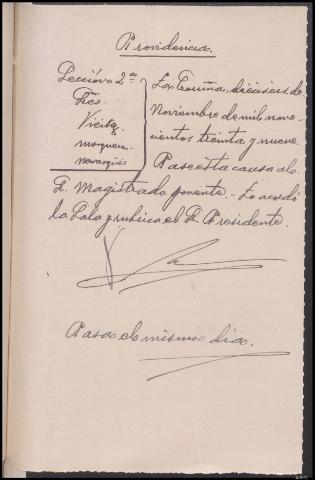 Providencia.
Sección 2ª
Sres.
Vieitez.
Mosquera.
Navarques
La Coruña, dieciseis de
Noviembre de mil nove-
cientos treinta y nueve.
Pase esta causa al
Sr. Magistrado ponente. Lo acordó
la Sala y rubrica el Sr. Presidente.
Pasa el mismo dia.